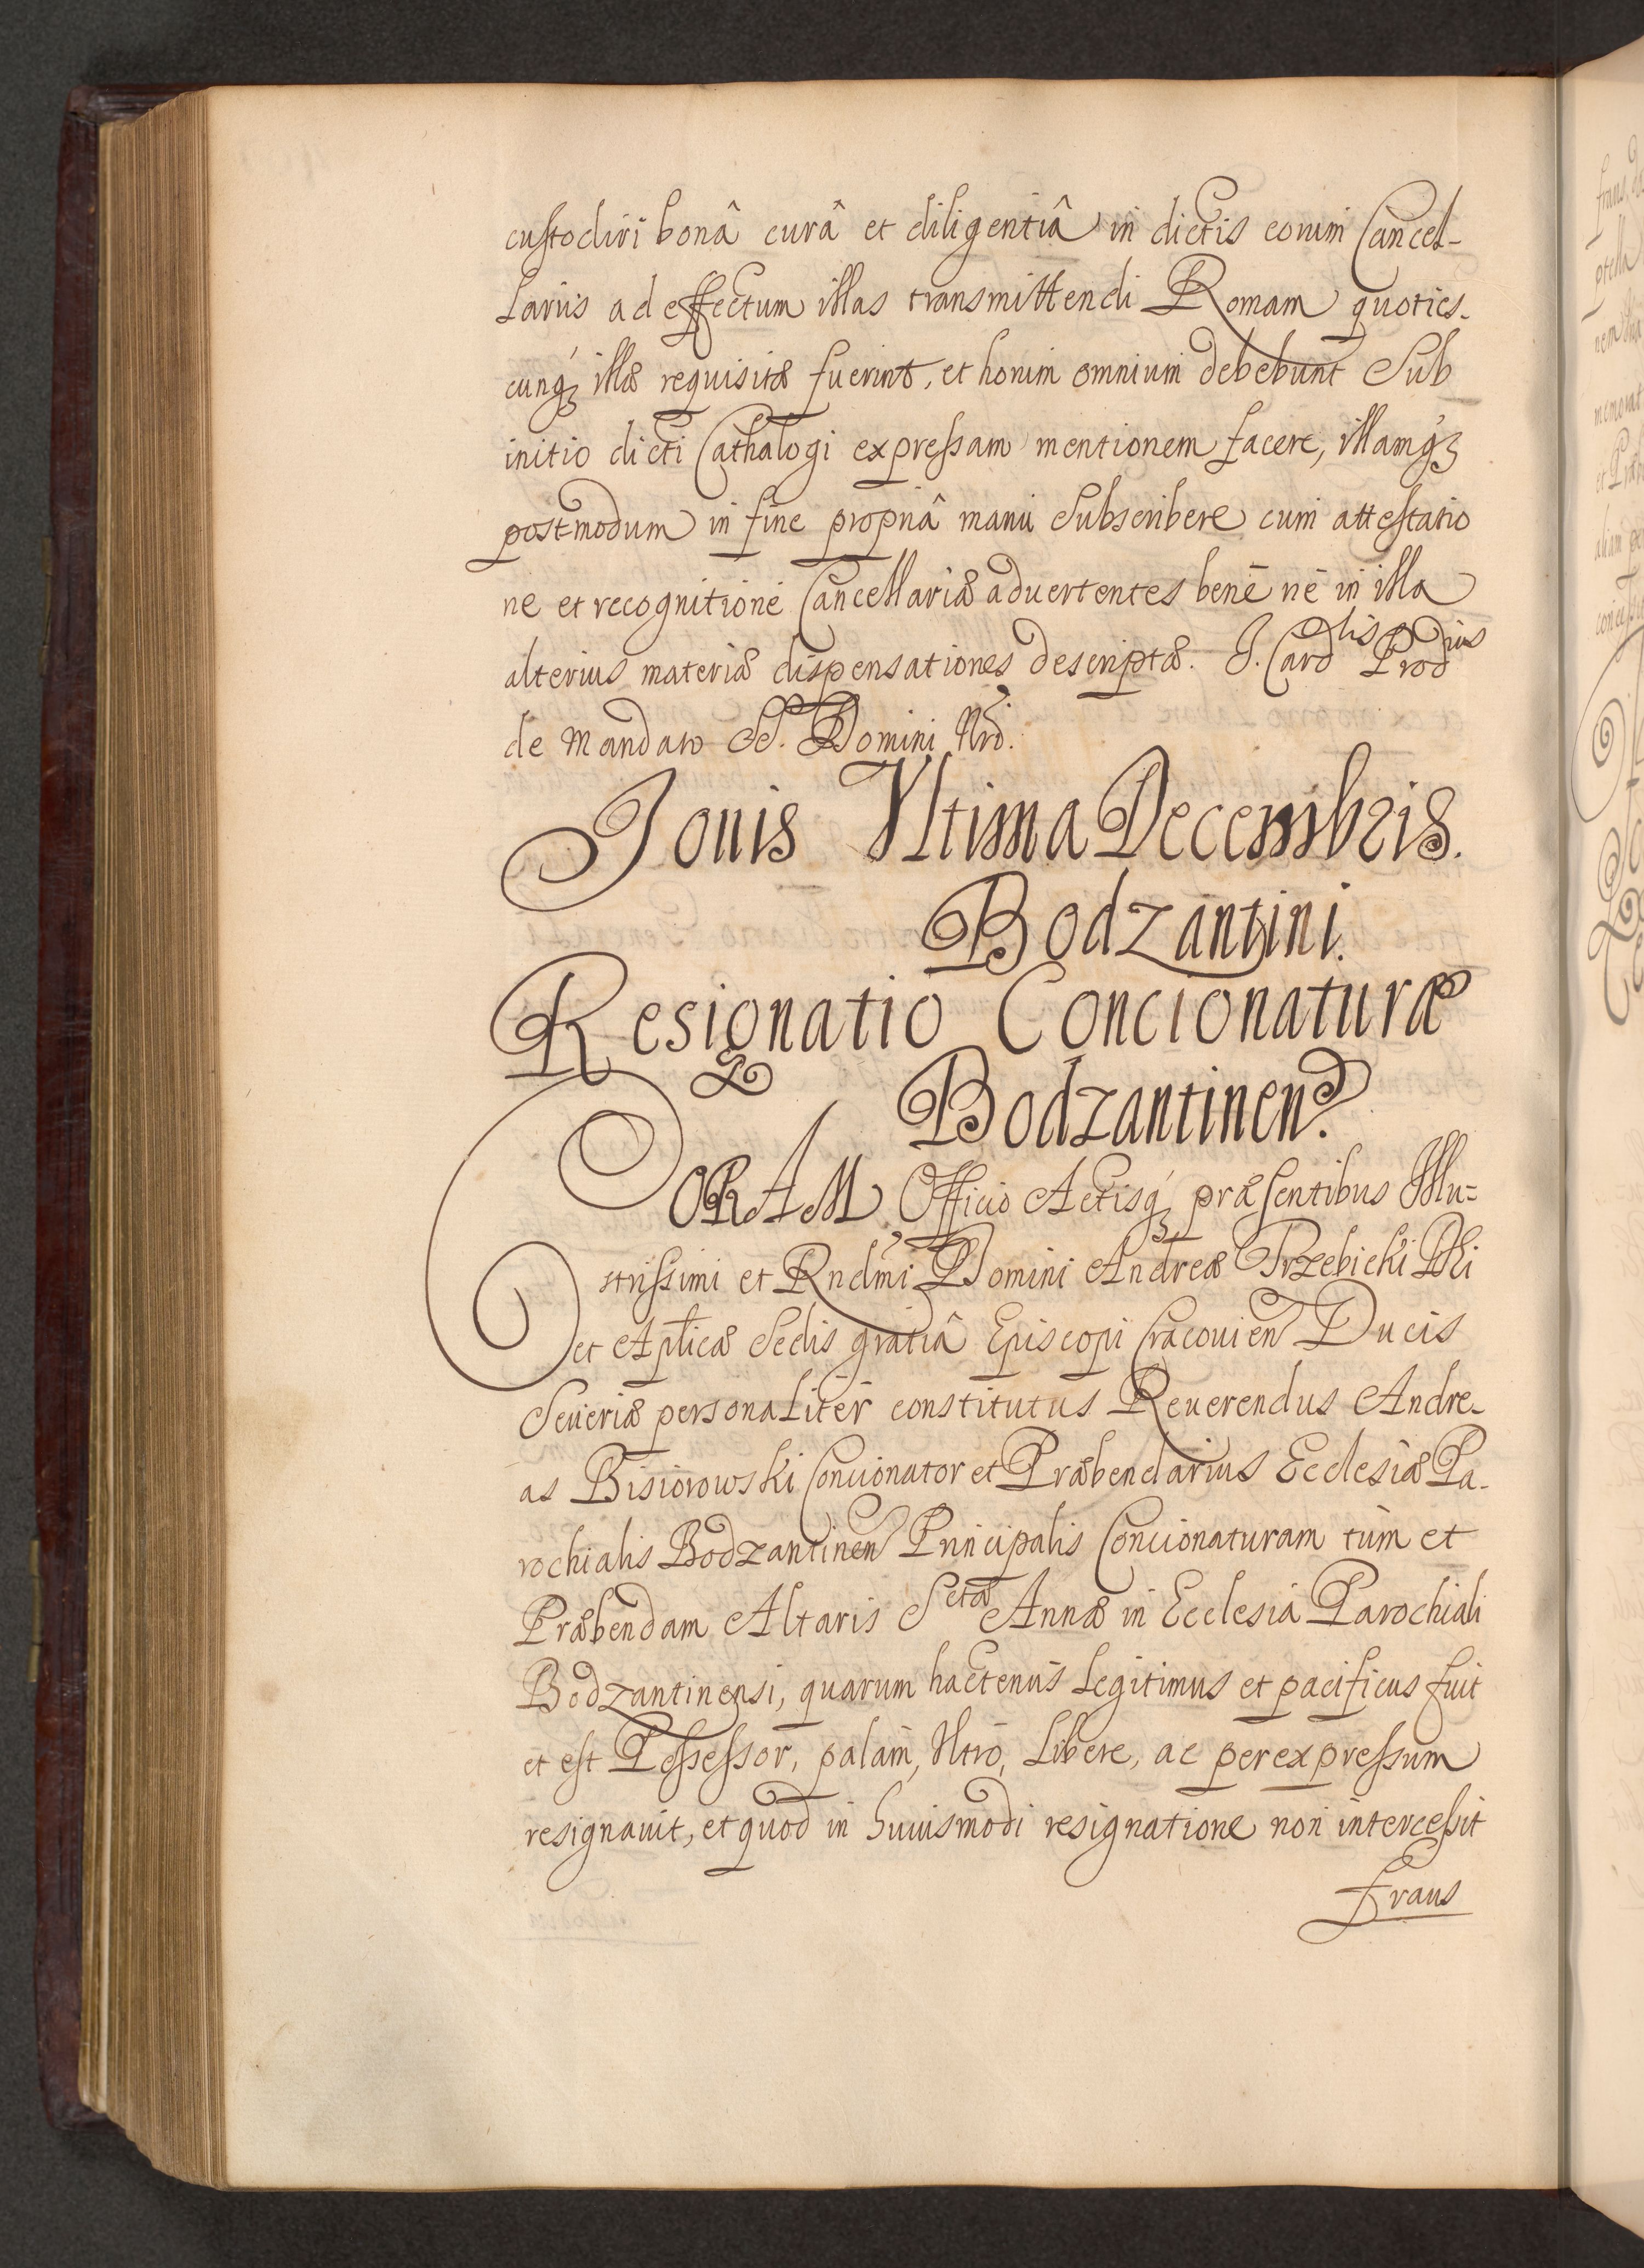 custodiri bonâ curâ et diligentiâ in dictis eorum Cancel-
lariis ad effectum illas transmittendi Romam quoties-
cunq́ʒ illæ requisitæ fuerint, et horum omnium debebunt Sub
initio dicti Cathalogi expressam mentionem facere, illamq́ʒ
postmodum in fine propriâ manu Subscribere cum attestatio
ne et recognitione Cancellariæ aduertentes benè nè in illa
alterius materiæ dispensationes descriptæ. J. Card^lis Prod^ius
de Mandato S. Domini Nrĩ.
Jouis Vltima Decembris.
Bodzantini.
Resignatio Concionaturæ
Bodzantinen̄.
CORAM Officio Actisq́ʒ præsentibus Illu=
strissimi et Rndm̃i Domini Andreæ Trzebicki Dei
et Aplicæ Sedis gratiâ Episcopi Cracouien̄ Ducis
Seueriæ personalitèr constitutus Reuerendus Andre-
as Bisiorowski Concionator et Præbendarius Ecclesiæ Pa-
rochialis Bodzantinen̄ Principalis Concionaturam tùm et
Præbendam Altaris S^ctæ Annæ in Ecclesia Parochiali
Bodzantinensi, quarum hactenùs Legitimus et pacificus fuit
et est Possessor, palàm, Vltrò, Libere, ac per expressum
resignauit, et quod in huiusmodi resignatione non intercessit
fraus